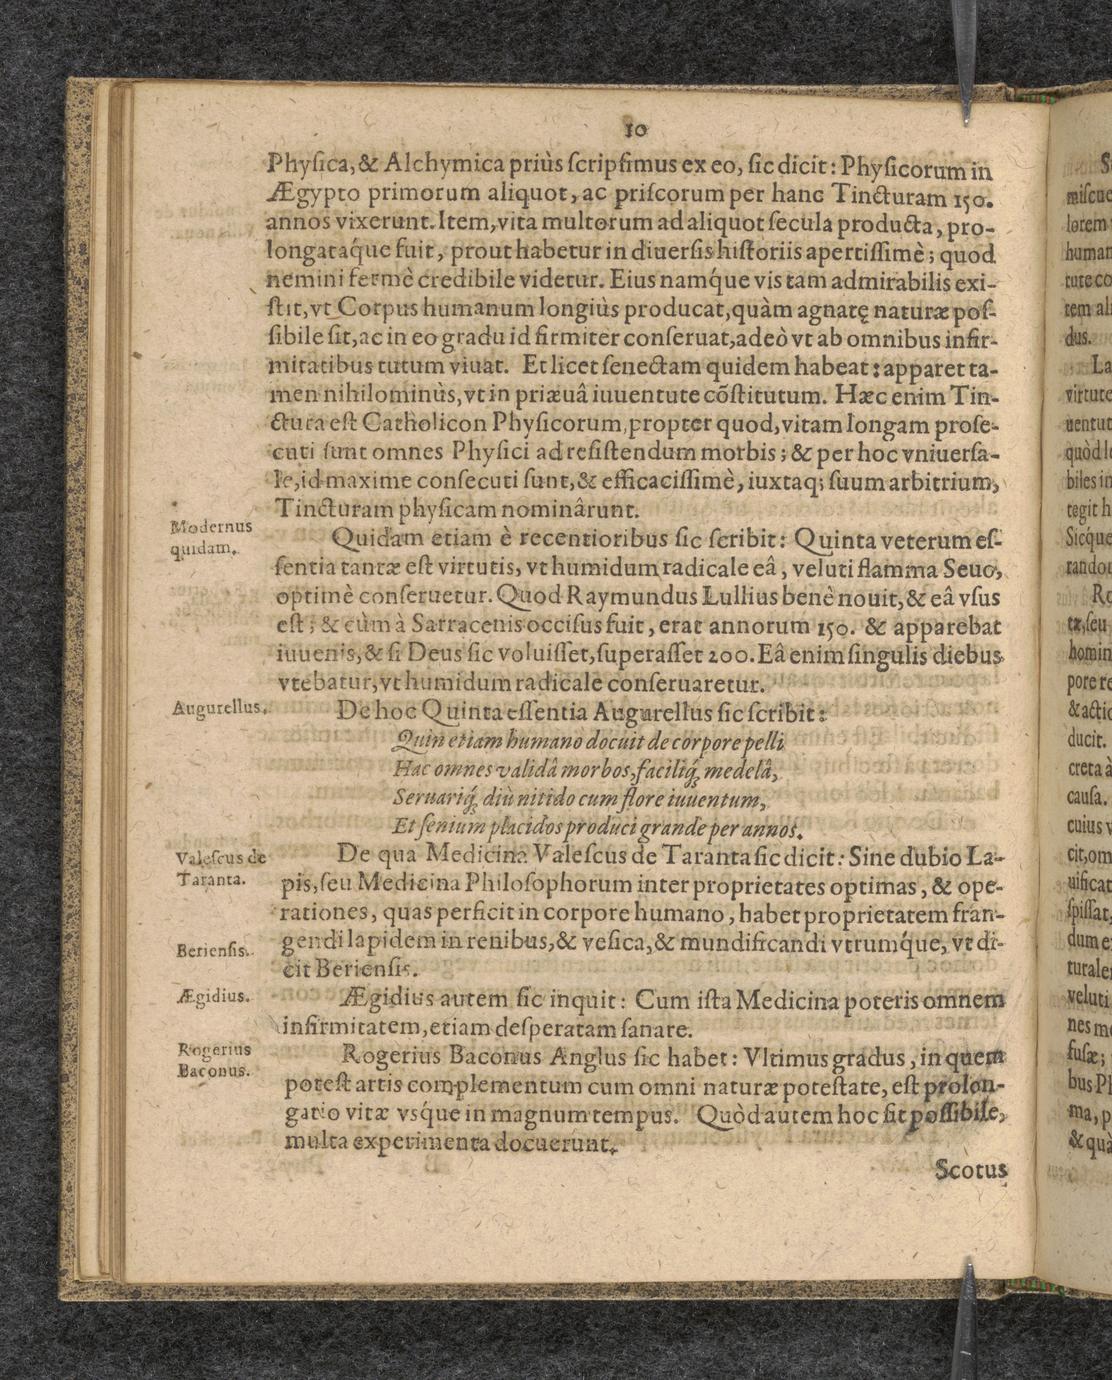 10
Phyſica, & Alchymica priùs ſcripſimus ex eo, ſic dicit: Phyſicorum in
Ægypto primorum aliquot, ac priſcorum per hanc Tincturam 150.
annos vixerunt. Item, vita multorum ad aliquot ſecula producta, pro-
longataq́ue fuit, prout habetur in diuerſis hiſtoriis apertiſſimè; quod
nemini fermè credibile videtur. Eius namq́ue vis tam admirabilis exi-
ſtit, vt Corpus humanum longiùs producat, quàm agnatę naturæ poſ-
ſibile ſit, ac in eo gradu id firmiter conſeruat, adeò vt ab omnibus infir-
mitatibus tutum viuat. Et licet ſenectam quidem habeat: apparet ta-
men nihilominùs, vt in priæuâ iuuentute cõſtitutum. Hæc enim Tin-
ctura eſt Catholicon Phyſicorum, propter quod, vitam longam proſe-
cuti ſunt omnes Phyſici ad reſiſtendum morbis; & per hoc vniuerſa-
le, id maxime conſecuti ſunt, & efficaciſſimè, iuxtaq; ſuum arbitrium,
Tincturam phyſicam nominârunt.
Modernus
quidam.
Quidam etiam è recentioribus ſic ſcribit: Quinta veterum eſ-
ſentia tantæ eſt virtutis, vt humidum radicale eâ, veluti flamma Seuo,
optimè conſeruetur. Quod Raymundus Lullius benè nouit, & eâ vſus
eſt; & cùm à Sarracenis occiſus fuit, erat annorum 150. & apparebat
iuuenis, & ſi Deus ſic voluiſſet, ſuperaſſet 200. Eâ enim ſingulis diebus
vtebatur, vt humidum radicale conſeruaretur.
Augurellus.
De hoc Quinta eſſentia Augurellus ſic ſcribit:
Quin etiam humano docuit de corpore pelli
Hac omnes validâ morbos, faciliq́; medelâ,
Seruariq́; diù nitido cum flore iuuentum,
Et ſenium placidos produci grande per annos.
Valeſcus de
Taranta.
De qua Medicina Valeſcus de Taranta ſic dicit: Sine dubio La-
pis, ſeu Medicina Philoſophorum inter proprietates optimas, & ope-
rationes, quas perficit in corpore humano, habet proprietatem fran-
Berienſis.
gendi lapidem in renibus, & veſica, & mundificandi vtrumq́ue, vt di-
cit Berienſis.
Ægidius.
Ægidius autem ſic inquit: Cum iſta Medicina poteris omnem
infirmitatem, etiam deſperatam ſanare.
Rogerius
Baconus.
Rogerius Baconus Anglus ſic habet: Vltimus gradus, in quem
poteſt artis complementum cum omni naturæ poteſtate, eſt prolon-
gatio vitæ vsq́ue in magnum tempus. Quòd autem hoc ſit poſſibile,
multa experimenta docuerunt.
Scotus